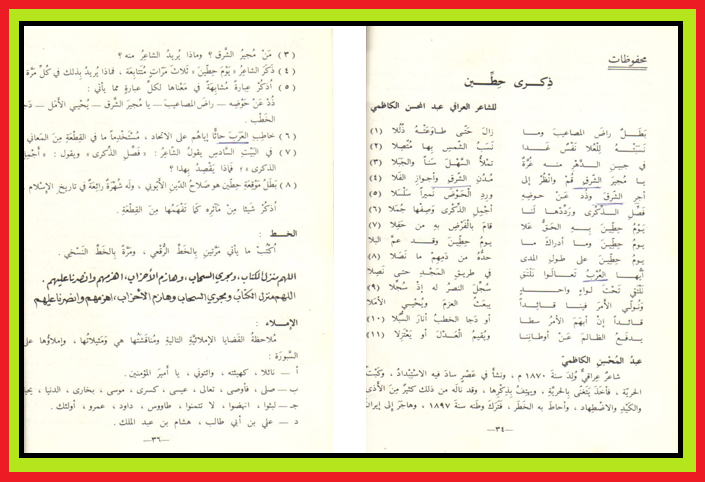 محفوظات
ذِكـــرى حِطِّـــين
للشاعر العراقي عبد المحسن الكاظمي
بَطَـــلٌ راضَ المصاعيبَ ومـــا زالَ حَتّـــى طـاوَعَتْـهُ ذُلُلا (١)
نَسَبَتْـــهُ لِلْعُلا نَفْسٌ غَـــدا نَسَبُ الشَّمسِ بِهـا مُتَّصِلا (٢)
في جبينِ الـدَّهْرِ منـه غُرَّةٌ تَمْلأُ السَّهْـلَ سَناً والجَبَلا (٣)
يـا مُجيرَ الشَّرقِ قُمْ وانْظُرْ إلى مُـدُنِ الشَّرقِ وأجوازِ الفَلا (٤)
أجرِ الشَّرقَ وذُد عَـنْ حوضِهِ ورِدِ الْحَـوْضَ نَميراً سَلْسَلا (٥)
فَضِّلِ الـذِّكْرى ورَدِّدْهـا لَنـا أَجْمِلِ الذِّكْرى وَصِفْها جُمَلا (٦)
يَومُ حِطّينَ بِـــهِ الحَـقُّ عَلا قامَ بالْفَرْضِ بِهِ من حَفَلا (٧)
يـومُ حِطّينَ ومـا أدراكَ مـا يـومُ حِطّينَ وقـد عـمَّ البلا
يـومُ حِطّينَ على طولِ المدى حدُّهُ من ذَمِهِمْ ما نَصَلا (٨)
أيُّهـا العُرْبُ تَعـالَوا نَلْتَقِ في طريقِ المَجْدِ حتى نَصِلا
نَلْتَقِ تَحْتَ لـواءٍ واحـــدٍ سُجِّلَ النصرُ له إذْ سُجِّلا (٩)
وَنُـولّي الأمرَ فينـا قـائـداً يبعَثُ العَزمَ ويُحْيـي الأمَلا
قـائـداً إنْ أَبهَمَ الأمرُ سطـا أو دَجا الخطبُ أنارَ السُّبُلا (١٠)
يـدفَـعُ الظـالـمَ عَـنْ أوطـانِنـا ويُقيمُ العَـدْلَ أو يَعْتَزِلا (١١)
عبدُ المُحْسِنِ الكاظميّ
شاعرٌ عِراقيٌّ وُلِدَ سَنَةَ ١٨٧٠ م ، ونشأ في عَصْرٍ سادَ فيه الاسْتِبْدادُ ، وكُبِتَتْ
الحريّةُ ، فأخَذَ يَتَغَنّى بِالحريَّةِ ، ويهتِفُ بِذِكْرِها ، وقد نالَه من ذلك كثيرٌ مِنَ الأذى
والكَيْدِ والاضْطِهادِ ، وأحاطَ به الخَطَر ، فَتَرَكَ وطَنَه سَنَةَ ١٨٩٧ ، وهاجَرَ إلى إيران
—٣٤—
(٣) مَنْ مُجيرُ الشَّرقِ ؟ وماذا يُريدُ الشاعِرُ منه ؟
(٤) ذَكَرَ الشاعِرُ « يَوْمَ حِطّينَ » ثلاثَ مَرّاتٍ مُتَتابِعَة ، فماذا يُريدُ بِذلِك في كُلِّ مَرَّة
(٥) اُذكُرْ عِبارةً مُشابِهَةً في مَعْناها لِكلِّ عِبارةٍ مما يأتي :
ذُدْ عَنْ حَوْضِهِ — راضَ المصاعيبَ — يا مُجيرَ الشَّرق — يُحْيـي الأَمَل —
الخَطْب .
(٦) خاطِبِ العَرَبَ حاثًّا إياهُم على الاتحاد ، مُسْتَخْدِماً ما في القِطْعَةِ مِنَ المَعاني
(٧) في البَيْتِ السّادِسِ يقولُ الشّاعِرُ : « فَصِّلِ الذِّكرى » ويقول : « أَجْمِلِ
الذكرى » ؛ فماذا يَقْصِدُ بِهذا ؟
(٨) بَطَلُ مَوْقِعَةِ حِطّين هو صَلاحُ الدّينِ الأيّوبي ، ولَهُ شُهْرَةٌ رائِعَةٌ في تاريخِ الإسْلامِ
اُذكُرْ شَيئاً مِنْ مَآثِرِه كَما تَفْهَمُها مِنَ القِطْعَةِ .
الخـــط :
اُكْتُبْ ما يأتي مَرَّتينِ بِالخَطِّ الرُّقْعي ، ومَرَّةً بِالخَطِّ النَّسْخي .
اللهم منزل الكتاب ، ومجري السحاب ، وهازم الأحزاب ، اهزمهم وانصرنا عليهم .
اللهم منزل الكتاب ومجري السحاب وهازم الأحزاب ، اهزمهم وانصرنا عليهم
الإمـــلاء :
مُلاحظةُ القَضايا الإملائيّةِ التالِيةِ ومُناقَشَتُها هي وَمَثيلاتُها ، وإملاؤها على
السَّبّورَة :
أ — نائلا ، كهيئته ، وائتوني ، يا أميرَ المؤمنين .
ب — صلى ، فأوصى ، تعالى ، عيسى ، كسرى ، موسى ، بخارى ، الدنيا ،
جـ — لبثوا ، انهضوا ، لا تتمنوا ، طاووس ، داود ، عمرو ، أولئك .
د — علي بن أبي طالب ، هشام بن عبد الملك .
—٣٦—